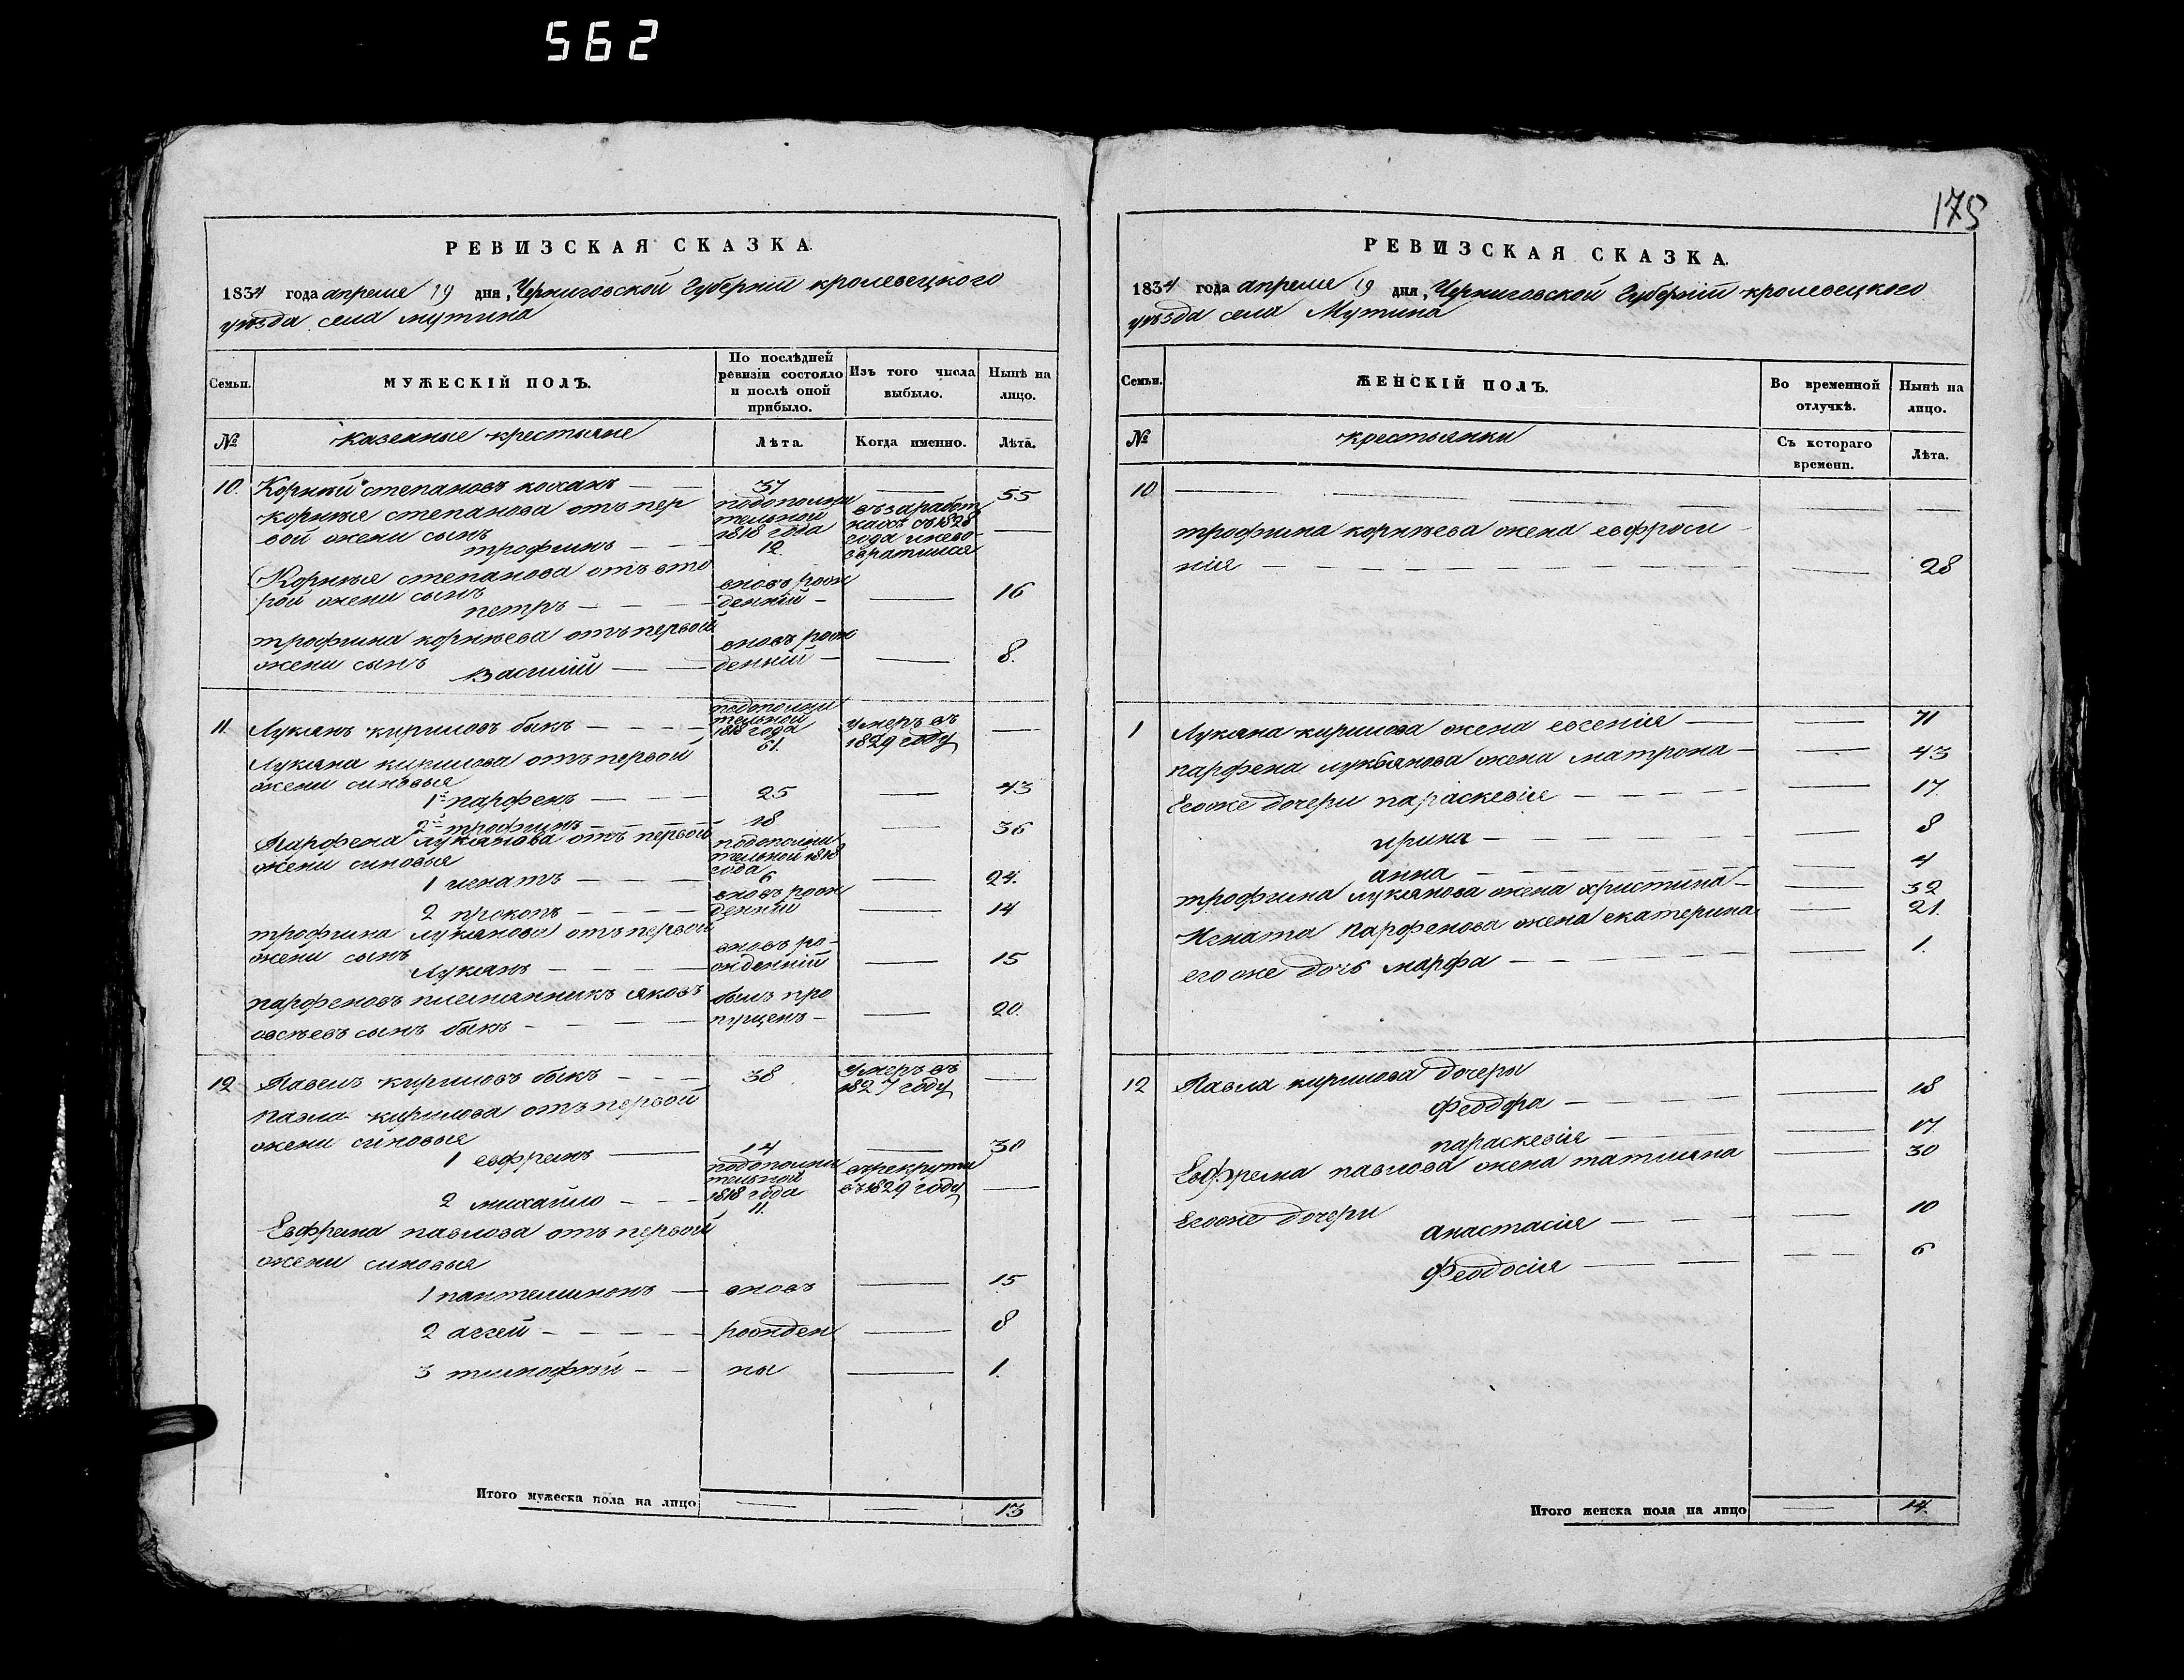 562
175
РЕВИЗСКАЯ СКАЗКА.
1834 года апреля 19 дня, Черниговской Губерніи кролевецкого
уѣзда села мутина
Семьи.
МУЖЕСКІЙ ПОЛЪ.
По послѣдней ревизіи состояло и послѣ оной прибыло.
Изъ того числа выбыло.
Нынѣ на лицо.
№
казенные крестьяне
Лѣта.
Когда именно.
Лѣта.
10. Корнѣй степановъ коханъ — 37 — 55
Корнѣя степанова отъ пер
вой жени сынъ
трофимъ — — подополни
тельной
1818 года
12 въ заработ
кахъ съ 1828
года и нево
звратился —
Корнѣя степанова отъ вто
рой жени сынъ
петръ — — — вновь рож
денній — — 16
трофима корнѣева отъ первой
жени сынъ
Василій — — вновь рож
денній — — 8.
11. Лукянъ кириловъ быкъ — — — подополни
тельной
1818 года
61. умеръ въ
1829 году —
Лукяна кирилова отъ первой
жени синовья
1й парфенъ — — — 25 — 43
2й трофимъ — — — 18 — 36
Парфена лукянова отъ первой
жени синовья
1 игнатъ — — — подополни
тельной 1818
года
6 — 24.
2 прокопъ — — — вновь рож
денній — 14
трофима лукянова отъ первой
жени сынъ
Лукянъ — — — вновь ро-
жденній — 15
парфеновъ племянникъ яковъ
овсѣевъ сынъ быкъ — — — былъ про
пущенъ — — 20.
12 Павелъ кириловъ быкъ — — 38 умеръ въ
1827 году —
павла кирилова отъ первой
жени синовья
1 евфремъ — 14 — 30
2 михайло — — подополни
тельной
1818 года
11. врекрути
въ 1829 году —
Евфрема павлова отъ первой
жени синовья
1 пантелимонъ — вновь — 15
2 аггей — — — — рожден — 8
3 тимофѣй — — ны — 1.
Итого мужеска пола на лицо — — 13
РЕВИЗСКАЯ СКАЗКА.
1834 года апреля 19 дня, Черниговской Губерніи кролевецкого
уѣзда села Мутина
Семьи.
ЖЕНСКІЙ ПОЛЪ.
Во временной отлучкѣ.
Нынѣ на лицо.
№
крестьянки
Съ котораго времени.
Лѣта.
10 — — — — — —
трофима корнѣева жена евфроси
нія — — — — — — 28
1 Лукяна кирилова жена евгенія — — 71
парфена лукьянова жена матрона — — 43
Егоже дочери параскевія — — — — 17
ирина — — — — 8
анна — — — — 4
трофима лукянова жена христина — — 32
Игната Парфенова жена екатерина — 21.
егоже дочь марфа — — — — 1.
12 Павла кирилова дочери
феодора — — — — 18
параскевія — — — 17.
Евфрема павлова жена татияна — 30
Егоже дочери
анастасія — — — — 10
Феодосія — — — — 6
Итого женска пола на лицо — 14.